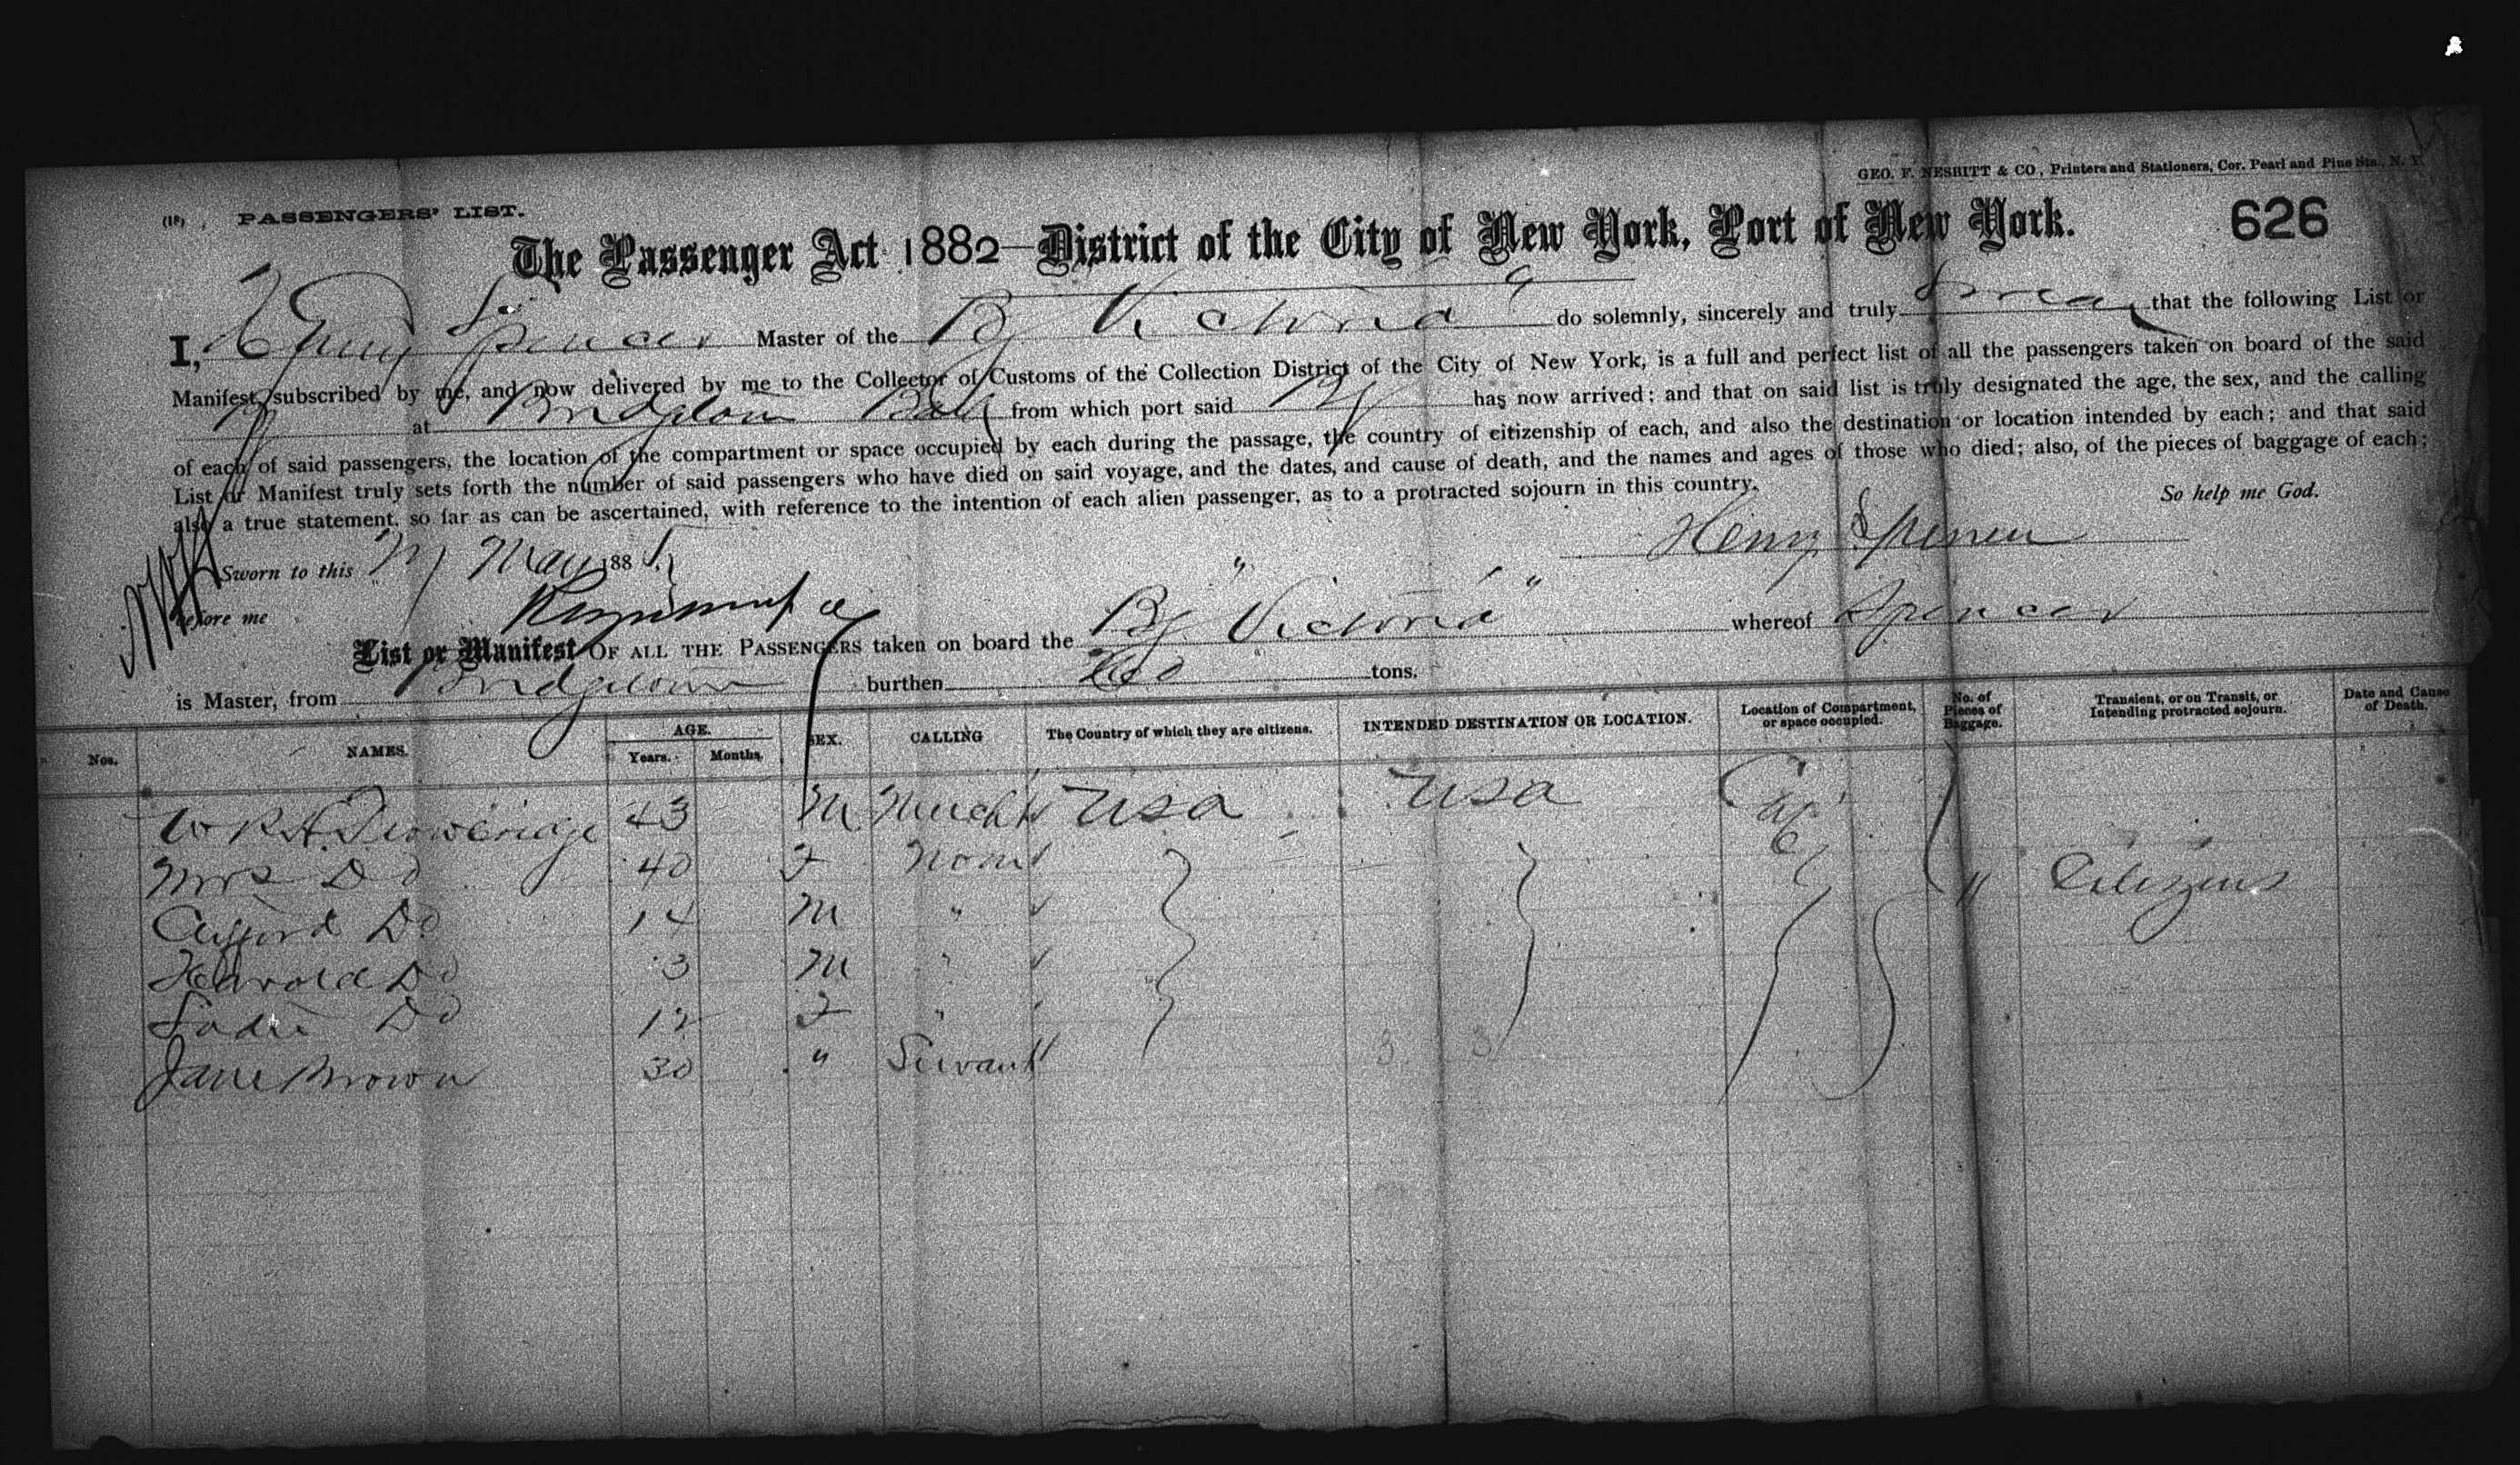 GEO. F. NESBITT & CO., Printers and Stationers, Cor. Pearl and Pine Sts., N. Y.
(18) PASSENGERS' LIST.
626
The Passenger Act 1882—District of the City of New York, Port of New York.
I, Henry Spencer Master of the Bg "Victoria" do solemnly, sincerely and truly swear that the following List or
Manifest, subscribed by me, and now delivered by me to the Collector of Customs of the Collection District of the City of New York, is a full and perfect list of all the passengers taken on board of the said
Bg at Bridgetown from which port said Bg has now arrived; and that on said list is truly designated the age, the sex, and the calling
of each of said passengers, the location of the compartment or space occupied by each during the passage, the country of citizenship of each, and also the destination or location intended by each; and that said
List or Manifest truly sets forth the number of said passengers who have died on said voyage, and the dates, and cause of death, and the names and ages of those who died; also, of the pieces of baggage of each;
also a true statement, so far as can be ascertained, with reference to the intention of each alien passenger, as to a protracted sojourn in this country.
So help me God.
Henry Spencer
Sworn to this May 1885
before me
List or Manifest OF ALL THE PASSENGERS taken on board the Bg "Victoria" whereof Spencer
is Master, from Bridgetown burthen tons.
Nos. NAMES. AGE. Years. Months. SEX. CALLING The Country of which they are citizens. INTENDED DESTINATION OR LOCATION. Location of Compartment, or space occupied. No. of Pieces of Baggage. Transient, or on Transit, or Intending protracted sojourn. Date and Cause of Death.
W R A 43 M Mercht USA USA
Mrs Do 40 F None
Clifford Do 14 M " 11 Citizens
Harold Do 3 M "
Sadie Do 12 F "
Jane Brown 30 " Servant
3 3